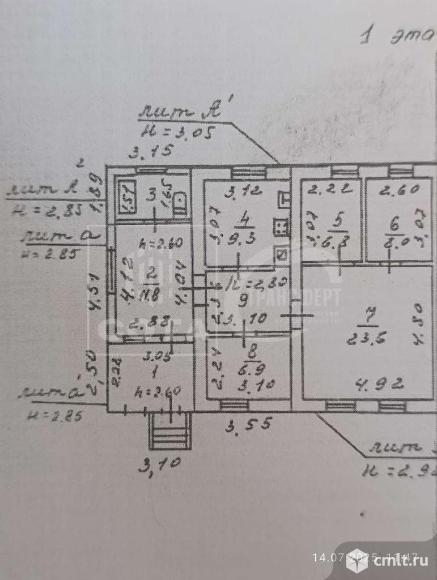 1 эта
лит А'
H = 3.05
3.15
2
лит А
H = 2.85
1.89
лит а
н = 2.85
1.51
3
1.65
h = 2.60
3.12
4
9.3
3.07
2.22
5
6.8
3.07
2.60
6
8.0
4.51
4.12
2
11.8
4.04
2.88
h = 2.80
9
3.10
7
23.5
4.80
4.92
2,50
2.28
3.05
1
h = 2.60
8
6.9
3.10
2.24
лит а'
H = 2.85
3,10
3.55
лит
СИТИ
ТРАНСФЕРТ
cmlt.ru